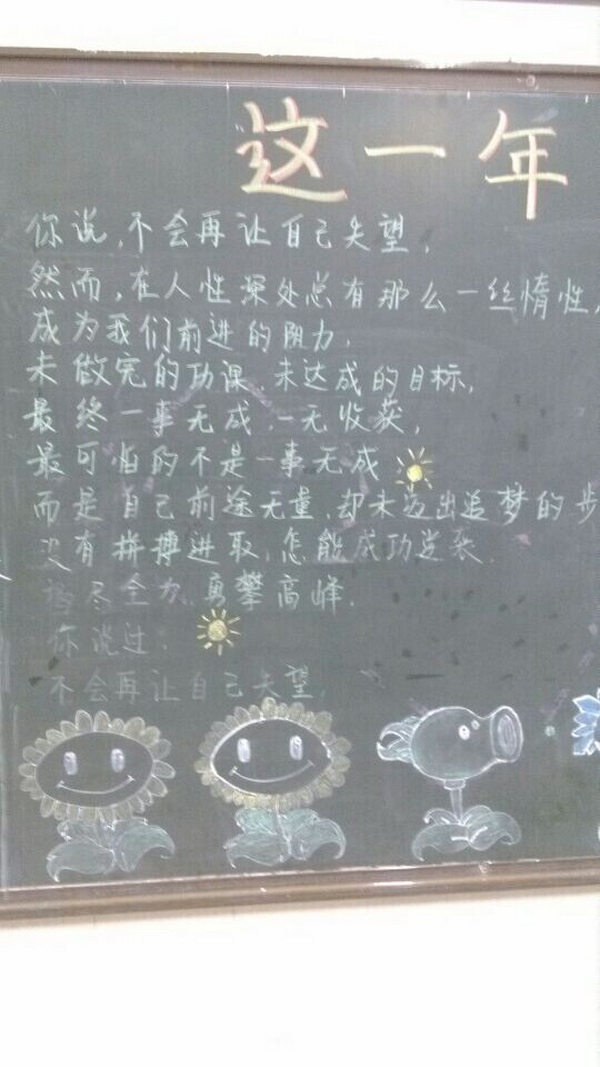 这一年
你说,不会再让自己失望,
然而,在人性深处总有那么一丝惰性,
成为我们前进的阻力,
未做完的功课,未达成的目标,
最终一事无成,一无收获,
最可怕的不是一事无成
而是自己前途无量,却未迈出追梦的步
没有拼搏进取,怎能成功逆袭.
竭尽全力,勇攀高峰.
你说过:
不会再让自己失望,